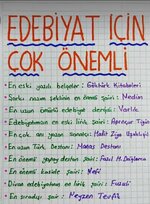 EDEBİYAT İÇİN
ÇOK ÖNEMLİ
• En eski yazılı belgeler : Göktürk Kitabeleri
• Şarkı nazım şeklinin en önemli şairi : Nedim
• En uzun ömürlü edebiyat dergisi : Varlık
• Edebiyatımızın en eski lirik şairi : Aprınçur Tigin
• En çok anı yazan sanatçı : Halit Ziya Uşaklıgil
• En uzun Türk Destanı : Manas Destanı
• En önemli yapay destan şairi : Fazıl H. Dağlarca
• En önemli kaside şairi : Nefi
• Divan edebiyatının en lirik şairi : Fuzuli
• En sıradışı şair : Neyzen Tevfik